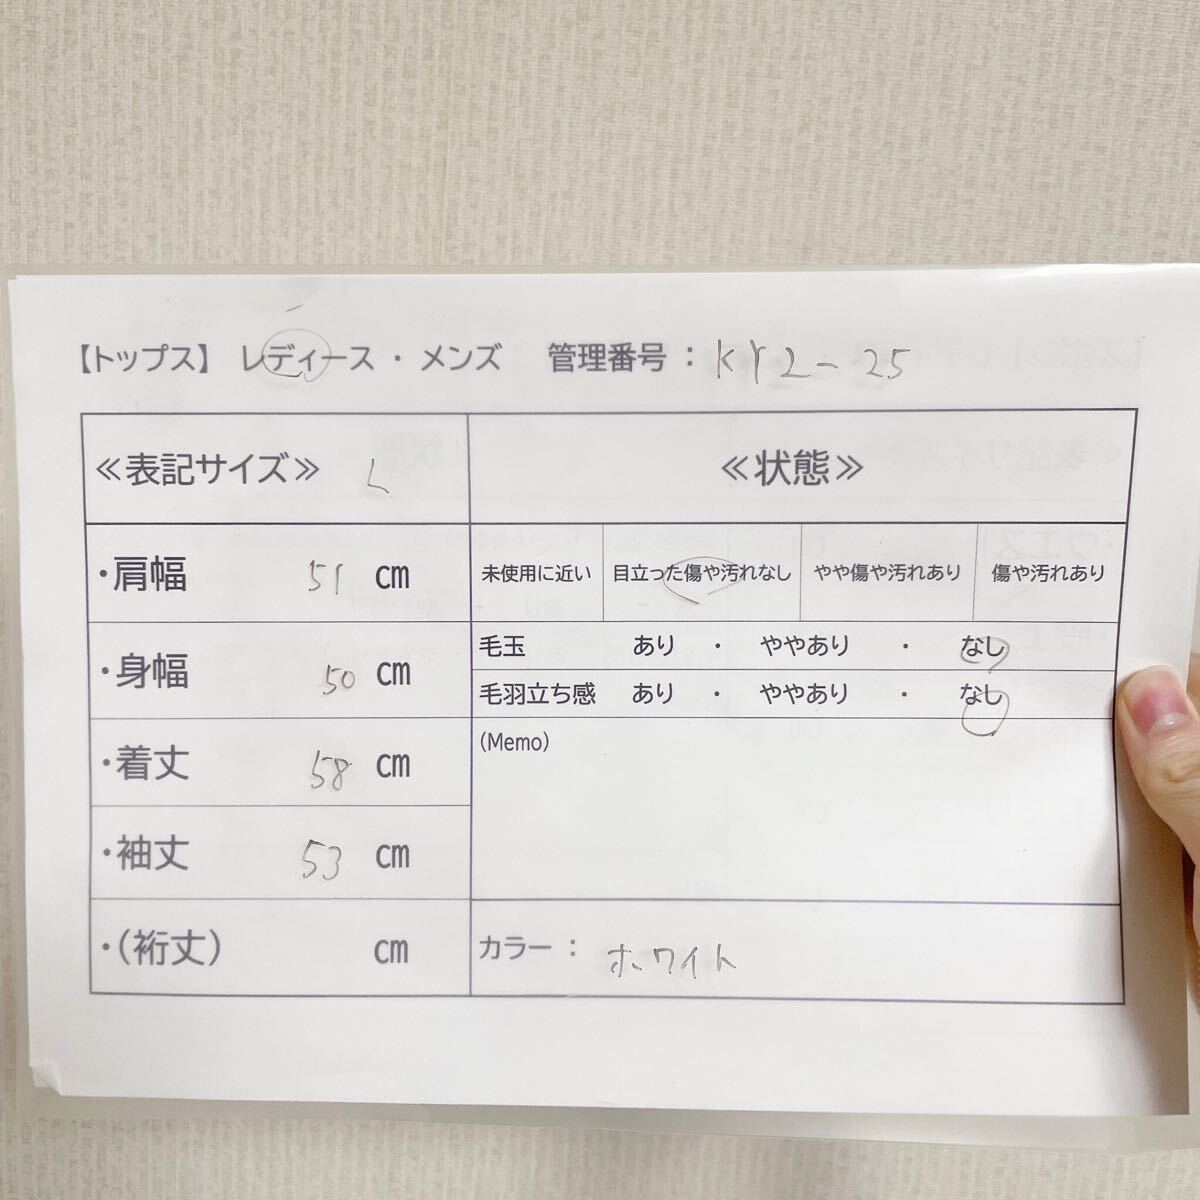 【トップス】 レディース ・ メンズ 管理番号 : KY2-25
≪表記サイズ≫ L
≪状態≫
・肩幅 51 cm
未使用に近い 目立った傷や汚れなし やや傷や汚れあり 傷や汚れあり
毛玉 あり ・ ややあり ・ なし
・身幅 50 cm
毛羽立ち感 あり ・ ややあり ・ なし
(Memo)
・着丈 58 cm
・袖丈 53 cm
・(裄丈) cm
カラー : ホワイト